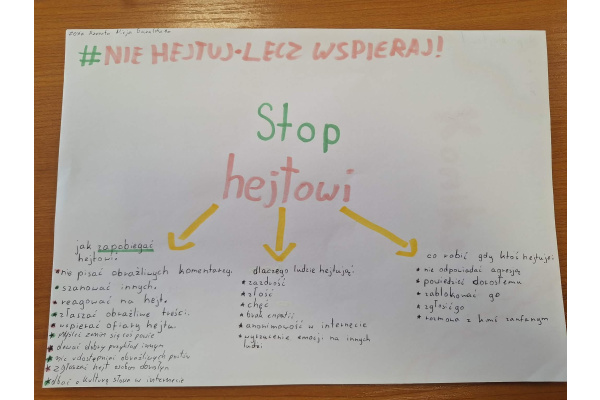 #NIE HEJTUJ-LECZ WSPIERAJ!
Stop
hejtowi
jak zapobiegać
hejtowi.
*nie pisać obraźliwych komentarzy.
*szanować innych.
*reagować na hejt.
*zgłaszać obraźliwe treści.
*wspierać ofiary hejtu.
*myśleć zanim się coś powie
*dawać dobry przykład innym
*nie udostępniać obraźliwych postów
*zgłaszać hejt osobom dorosłym
*dbać o kulturę słowa w internecie
dlaczego ludzie hejtują:
*zazdrość
*złość
*chęć
*brak empatii
*anonimowość w internecie
*wyrzucenie emocji na innych
ludzi
co robić gdy ktoś hejtuje:
*nie odpowiadać agresją
*powiedzieć dorosłemu
*zablokować go
*zgłoś go
*rozmowa z kimś zaufanym